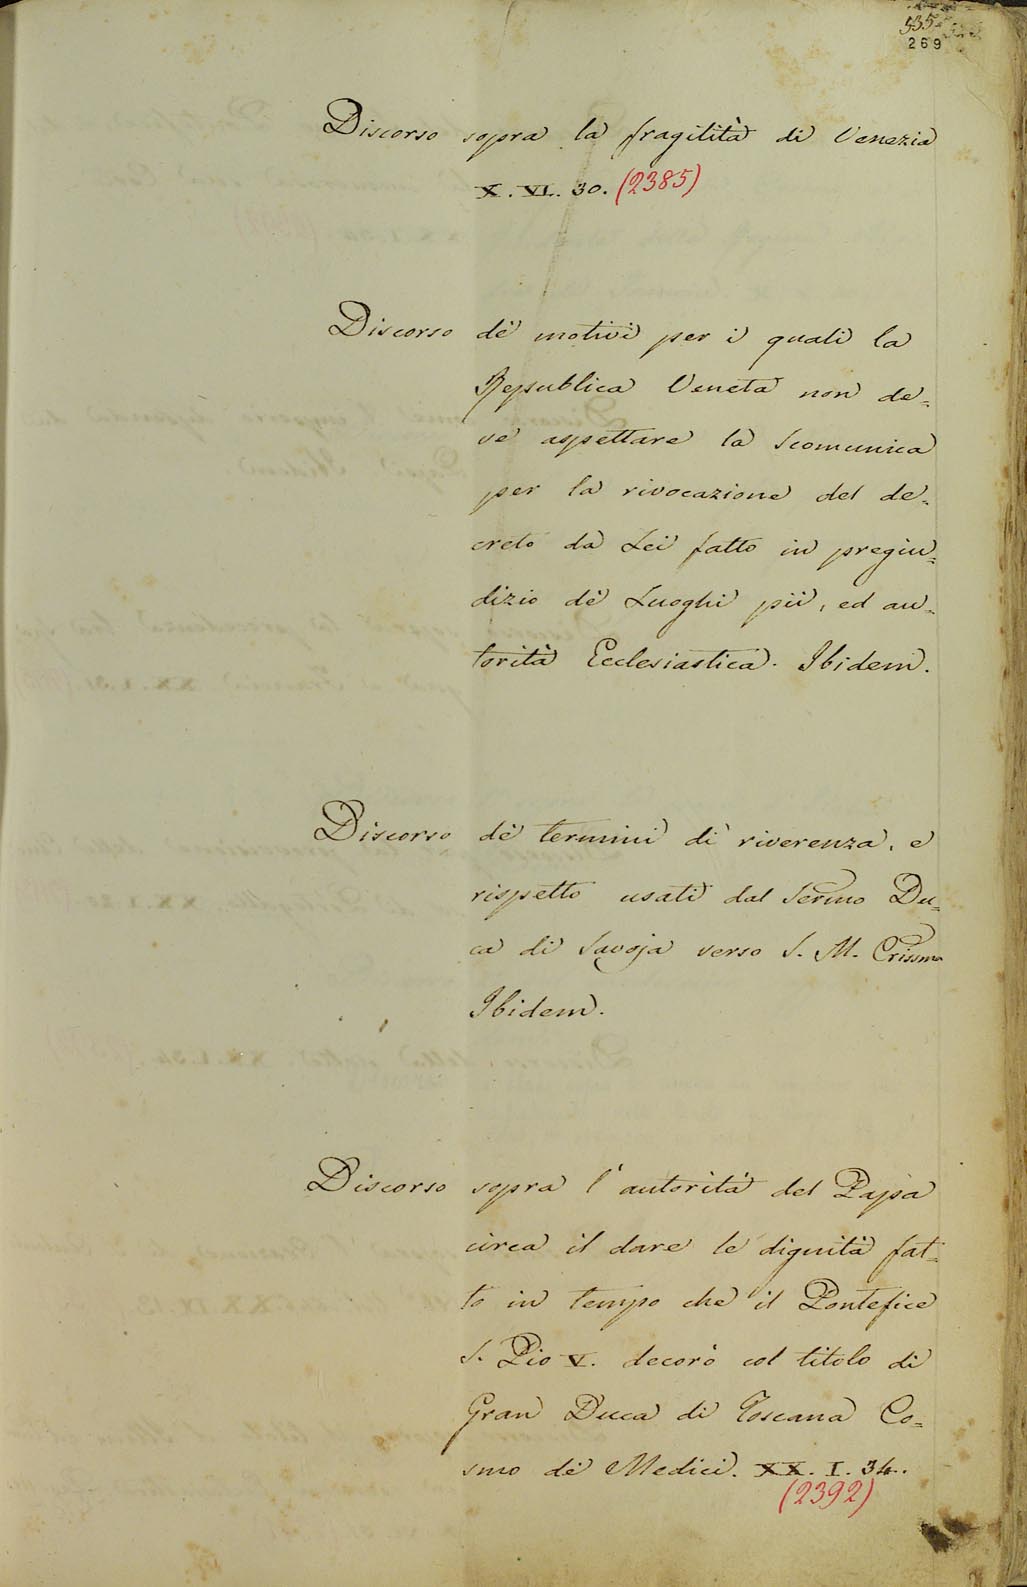 535
269
Discorso sopra la fragilità di Venezia
X. VI. 30. (2385)
Discorso de' motivi per i quali la
Republica Veneta non de=
ve aspettare la Scomunica
per la rivocazione del de=
creto da Lei fatto in pregiu=
dizio de' Luoghi pii, ed au=
torità Ecclesiastica. Ibidem.
Discorso de' termini di riverenza, e
rispetto usati dal Sermo Du=
ca di Savoja verso S. M. Crissma
Ibidem.
Discorso sopra l'autorità del Papa
circa il dare le dignità fat=
to in tempo che il Pontefice
S. Pio V. decorò col titolo di
Gran Ducca di Toscana Co=
smo de' Medici. XX. I. 34.
(2392)